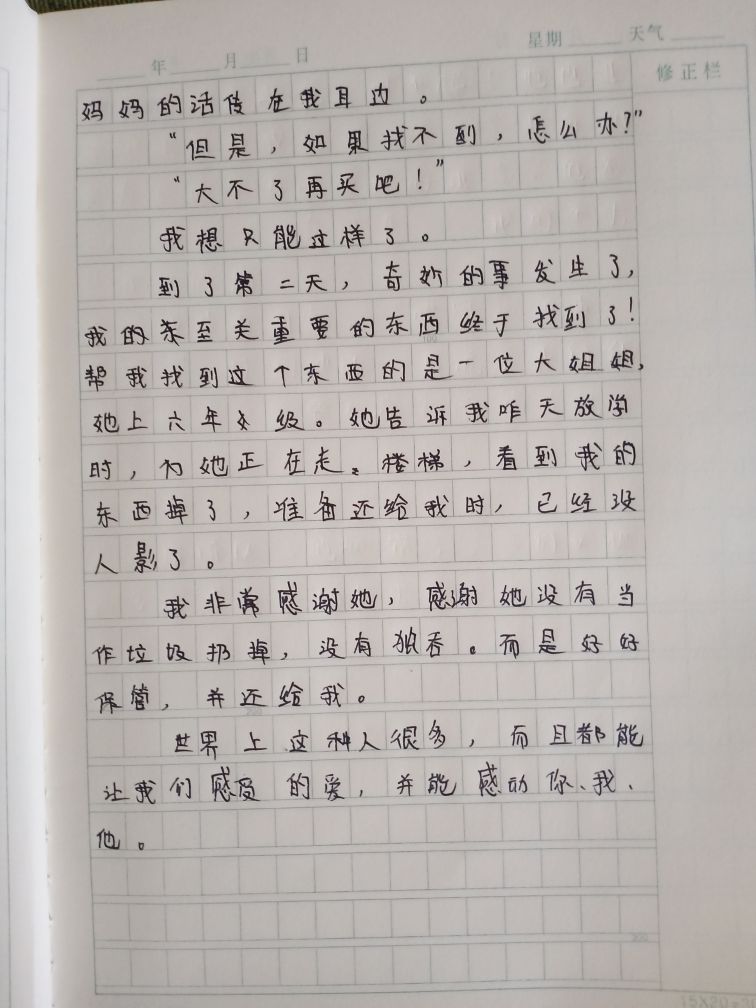 年 月 日 星期 天气
修正栏
妈妈的话传在我耳边。
“但是，如果找不到，怎么办？”
“大不了再买吧！”
我想只能这样了。
到了第二天，奇妙的事发生了，
我的东至关重要的东西终于找到了！
帮我找到这个东西的是一位大姐姐，
她上六年级。她告诉我昨天放学
时，她正在走楼梯，看到我的
东西掉了，准备还给我时，已经没
人影了。
我非常感谢她，感谢她没有当
作垃圾扔掉，没有独吞。而是好好
保管，并还给我。
世界上这种人很多，而且都能
让我们感受的爱，并能感动你、我、
他。